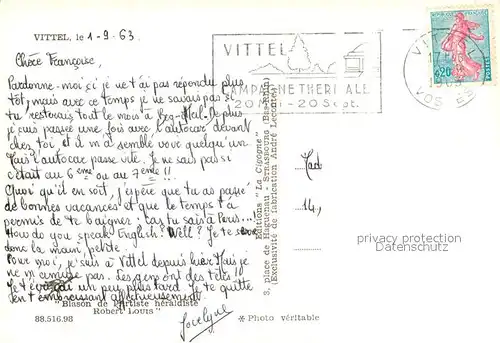 VITTEL, le 1-9-63
Chère Françoise,
Pardonne-moi si je ne t'ai pas répondu plus
tôt, mais avec ce temps je ne savais pas si
tu resterais tout le mois à Beg-Meil. De plus
je suis passée une fois avec l'autocar devant
chez toi et il m'a semblé voir quelqu'un.
Mais l'autocar passe vite. Je ne sais pas si
c'était au 6ème ou au 7ème !!
Quoi qu'il en soit, j'espère que tu as passé
de bonnes vacances et que le temps t'a
permis de te baigner : car tu sais à Paris...
How do you speak English? Well? Je te serre
dans la main, petite.
Pour moi, je suis à Vittel depuis hier. Mais je
ne m'amuse pas. Les gens ont des têtes !!
Je t'écrirai un peu plus tard. Je te quitte
en t'embrassant affectueusement.
Jocelyne
"Blason de l'Artiste héraldiste
Robert Louis"
88.516.98
* Photo véritable
Editions "La Cigogne"
3, place de Haguenau - STRASBOURG (Bas-Rhin)
(Exclusivité de fabrication André Leconte)
VITTEL
CAMPAGNE THERMALE
20 Mai - 20 Sept.
VITTEL
VOSGES
0,20
Mad
14,
privacy protection
Datenschutz